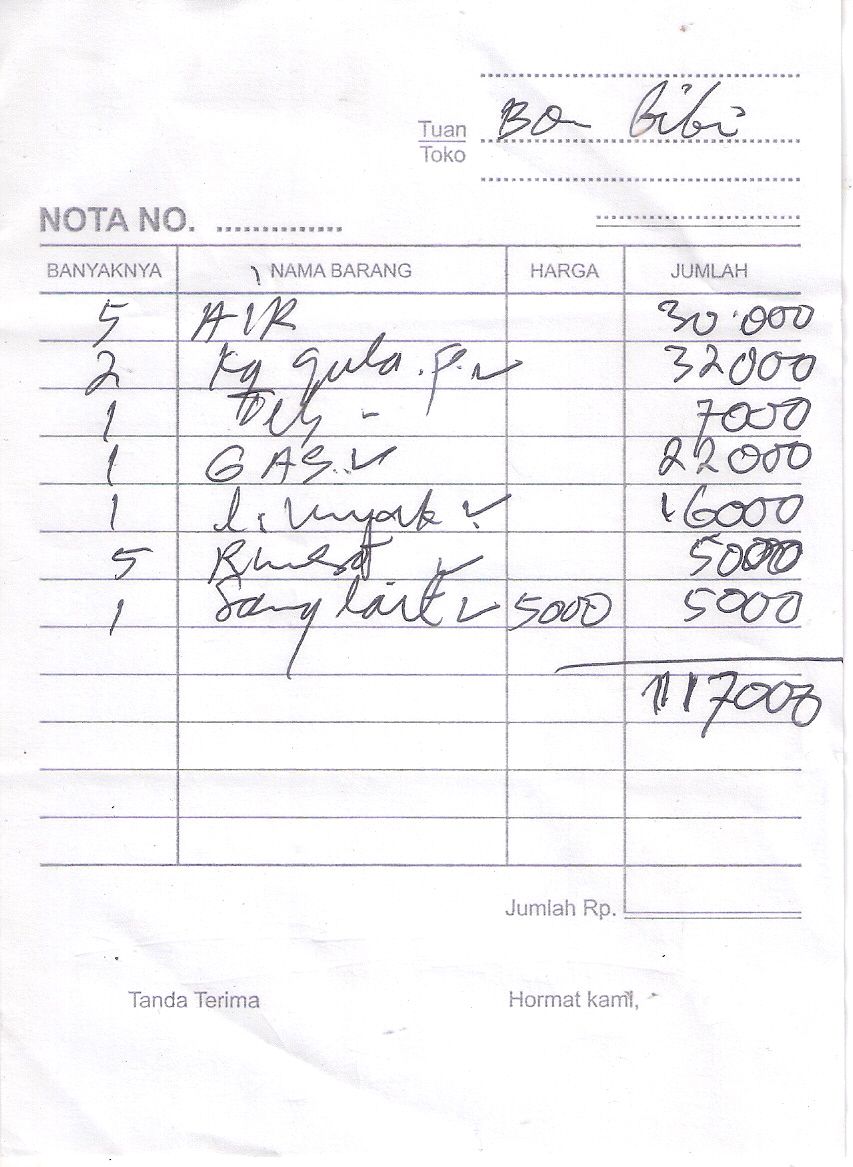 Tuan Bon Bibi
Toko
NOTA NO. ..............
BANYAKNYA NAMA BARANG HARGA JUMLAH
5 AIR 30.000
2 Kg gula .P. 32000
1 7000
1 GAS 22000
1 16000
5 5000
1 Sang lait 5000 5000
117000
Jumlah Rp.
Tanda Terima Hormat kami,